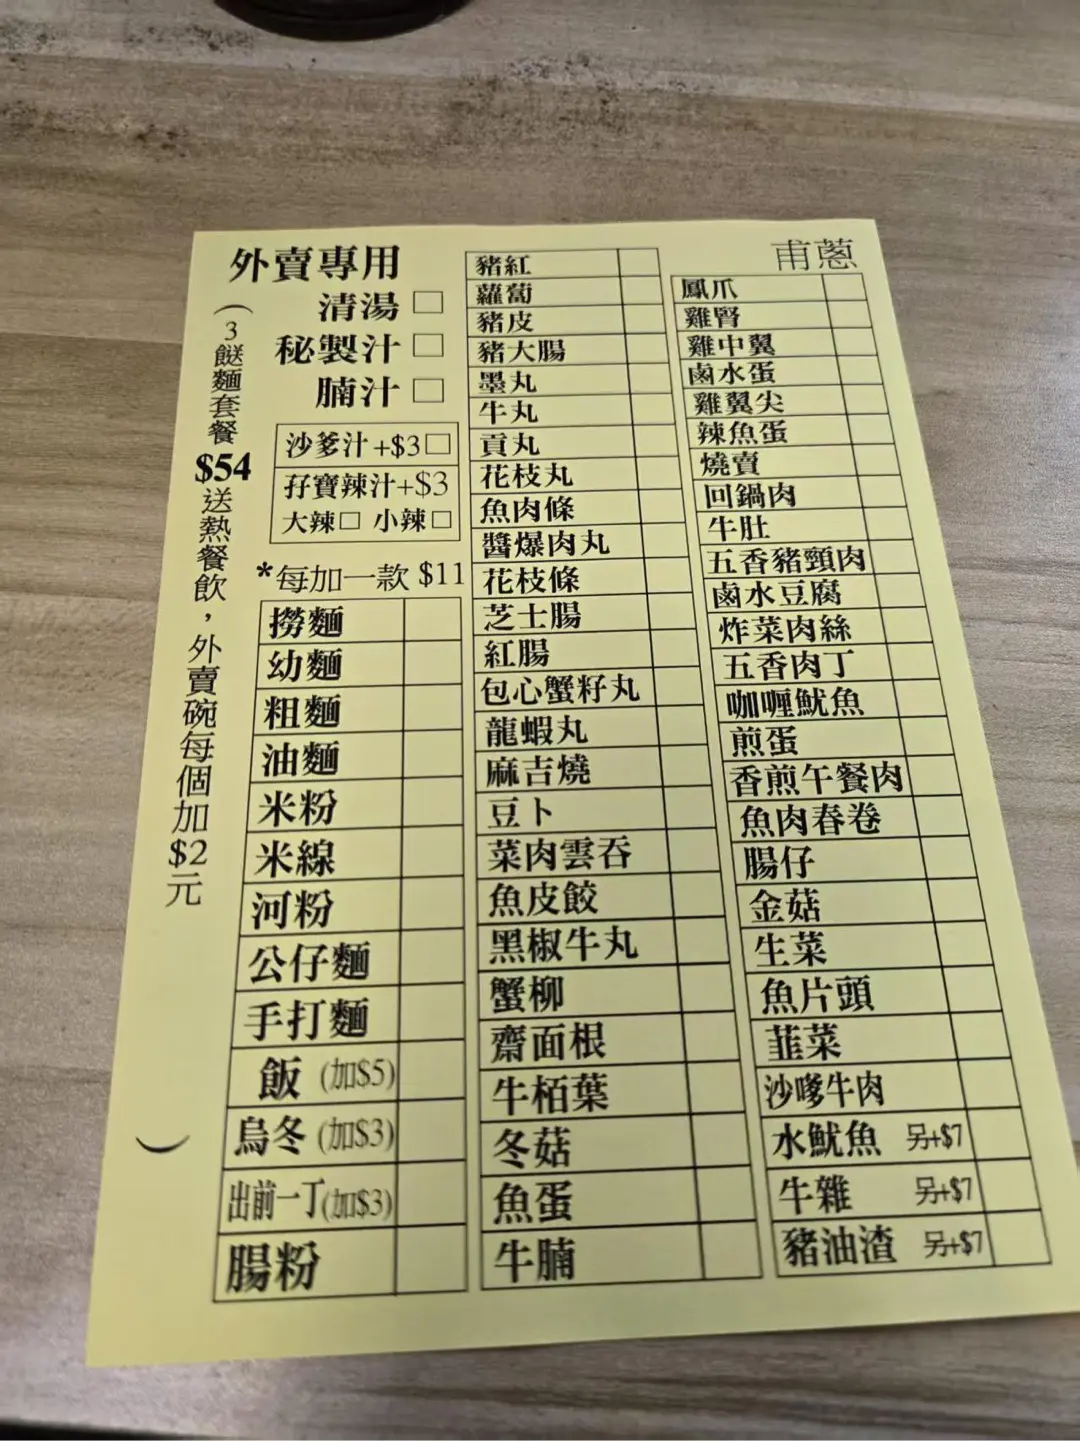 外賣專用
清湯 □
秘製汁 □
腩汁 □
沙爹汁+$3□
孖寶辣汁+$3
大辣□ 小辣□
*每加一款 $11
(3餸麵套餐$54送熱餐飲，外賣碗每個加$2元)
撈麵
幼麵
粗麵
油麵
米粉
米線
河粉
公仔麵
手打麵
飯 (加$5)
烏冬 (加$3)
出前一丁(加$3)
腸粉
豬紅
蘿蔔
豬皮
豬大腸
墨丸
牛丸
貢丸
花枝丸
魚肉條
醬爆肉丸
花枝條
芝士腸
紅腸
包心蟹籽丸
龍蝦丸
麻吉燒
豆卜
菜肉雲吞
魚皮餃
黑椒牛丸
蟹柳
齋面根
牛栢葉
冬菇
魚蛋
牛腩
甫蔥
鳳爪
雞腎
雞中翼
鹵水蛋
雞翼尖
辣魚蛋
燒賣
回鍋肉
牛肚
五香豬頸肉
鹵水豆腐
炸菜肉絲
五香肉丁
咖喱魷魚
煎蛋
香煎午餐肉
魚肉春卷
腸仔
金菇
生菜
魚片頭
韮菜
沙嗲牛肉
水魷魚 另+$7
牛雜 另+$7
豬油渣 另+$7